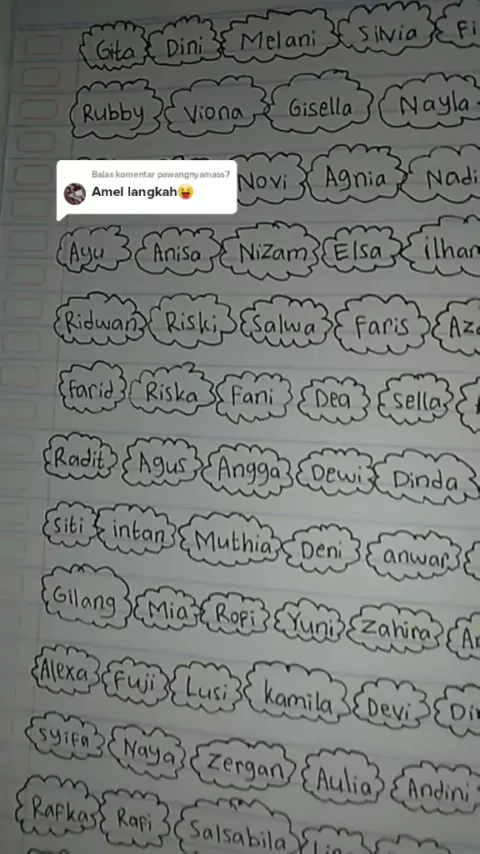 Gita Dini Melani Silvia Fi
Rubby Viona Gisella Nayla
Balas komentar pawangnyamass7
Amel langkah😝
Novi Agnia Nadi
Ayu Anisa Nizam Elsa ilham
Ridwan Riski Salwa Faris Aza
Farid Riska Fani Dea Sella
Radit Agus Angga Dewi Dinda
Siti intan Muthia Deni anwar
Gilang Mia Ropi Yuni Zahira
Alexa Fuji Lusi kamila Devi Din
Syifa Naya Zergan Aulia Andini
Rafkas Rapi Salsabila